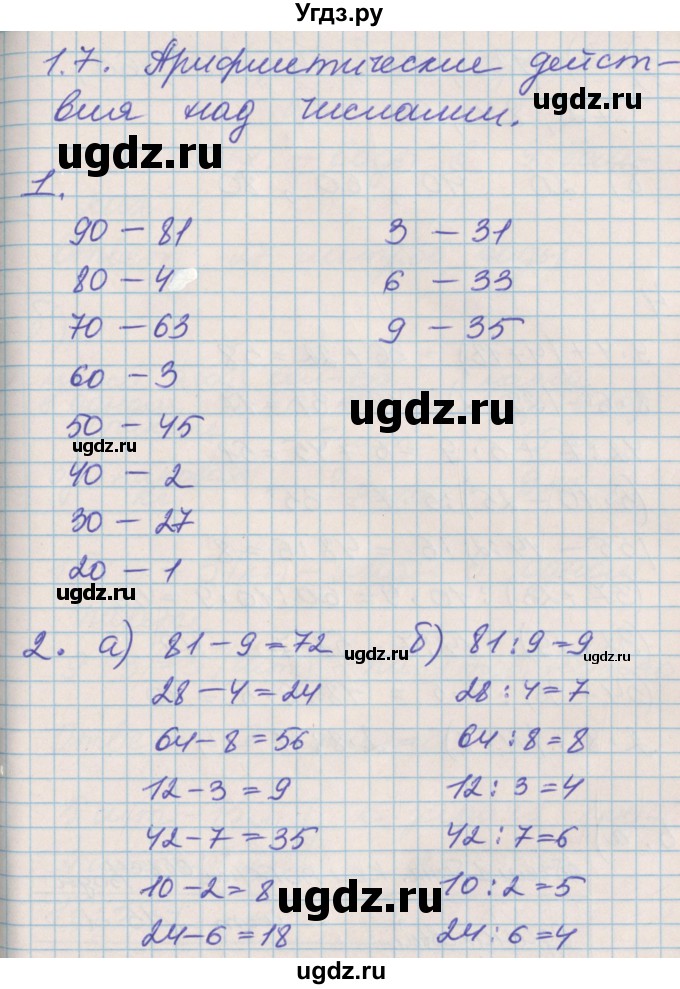 Угдз.ру
1.7. Арифметические дейст-
вия над числами.
ugdz.ru
ugdz.ru
1.
90 – 81 3 – 31
80 – 4 6 – 33
70 – 63 9 – 35
60 – 3
ugdz.ru
50 – 45
ugdz.ru
40 – 2
30 – 27
20 – 1
ugdz.ru
2. а) 81 – 9 = 72 б) 81 : 9 = 9
ugdz.ru ugdz.ru
28 – 4 = 24 28 : 4 = 7
64 – 8 = 56 64 : 8 = 8
12 – 3 = 9 12 : 3 = 4
42 – 7 = 35 42 : 7 = 6
10 – 2 = 8 10 : 2 = 5
ugdz.ru
24 – 6 = 18 24 : 6 = 4
ugdz.ru